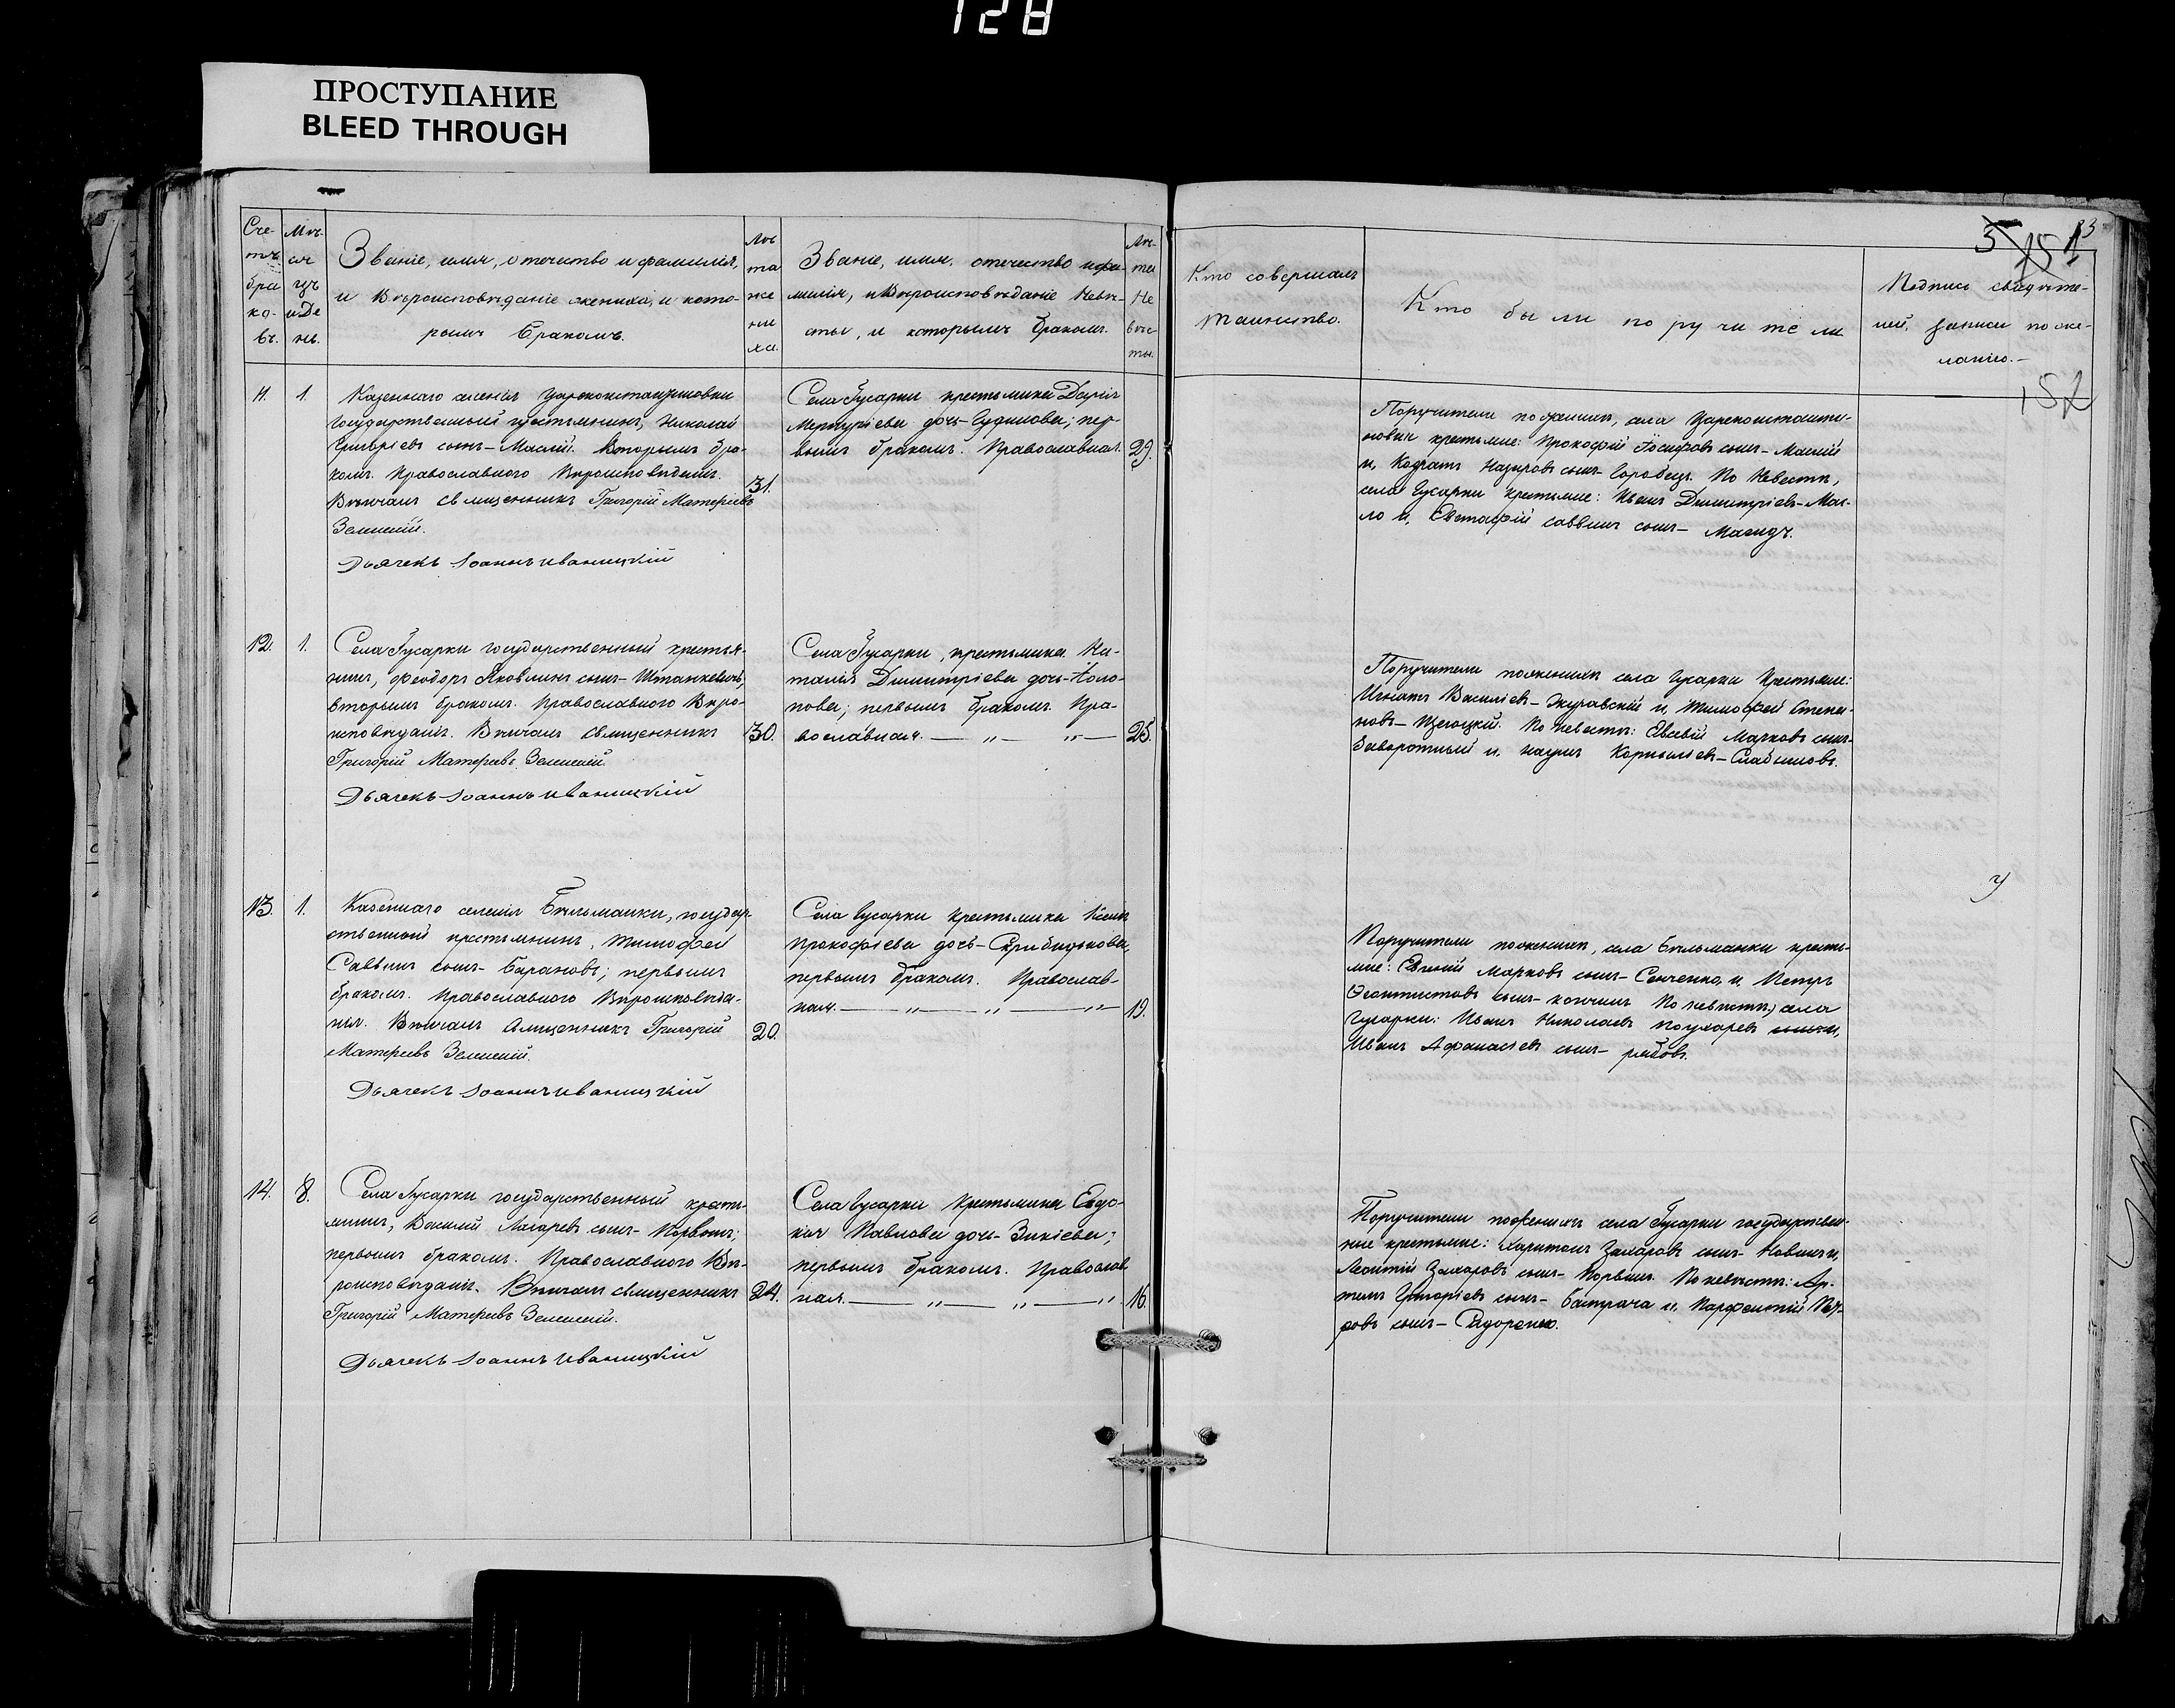 128
ПРОСТУПАНИЕ
BLEED THROUGH
Сче-
тъ
бра
ко-
въ.
Мѣ-
ся
цъ
и Де
нь.
Званіе, имя, отечество и фамилія,
и Вѣроисповѣданіе жениха, и кото-
рымъ бракомъ.
Лѣ
та
же
ни
ха.
Званіе, имя, отечество и фа-
милія, и Вѣроисповѣданіе Невѣ-
сты, и которымъ бракомъ.
Лѣ-
та
Не
вѣс
ты.
11. 1.
Казеннаго селенія Царекостантиновки
государственный крестьянинъ, Николай
Григоріевъ сынъ – Маслій. Вторымъ бра-
комъ. Православнаго Вѣроисповѣданія.
Вѣнчалъ священникъ Григорій Матѳеевъ
Зеленскій.
Дьячекъ Іоаннъ Иваницкій
31.
Села Гусарки крестьянка Дарія
Меркуріева дочь – Гудинова; пер-
вымъ бракомъ. Православная. 29.
12. 1.
Села Гусарки государственный крестья-
нинъ, Феодоръ Яковлевъ сынъ – Штанкевичъ,
вторымъ бракомъ. Православнаго Вѣро-
исповѣданія. Вѣнчалъ священникъ
Григорій Матѳеевъ Зеленскій.
Дьячекъ Іоаннъ Иваницкій
30.
Села Гусарки, крестьянка На-
талія Димитріева дочь –
бракомъ. Пра-
вославная. — „ — „ — 25.
13. 1.
Казеннаго селенія Бѣльманки, государ-
ственный крестьянинъ, Тимофей
Саввинъ сынъ – Барановъ; первымъ
бракомъ. Православнаго Вѣроисповѣда-
нія. Вѣнчалъ Священникъ Григорій
Матѳеевъ Зеленскій.
Дьячекъ Іоаннъ Иваницкій
20.
Села Гусарки крестьянка
Прокофіева дочь –
первымъ бракомъ. Православ-
ная. — „ — „ — „ 19.
14. 8.
Села Гусарки государственный кресть-
янинъ, Василій Лазаревъ сынъ – Порвинъ;
первымъ бракомъ. Православнаго Вѣ-
роисповѣданія. Вѣнчалъ священникъ
Григорій Матѳеевъ Зеленскій.
Дьячекъ Іоаннъ Иваницкій
24.
Села Гусарки Крестьянка Евдо-
кія Павлова дочь – Зикіева;
первымъ бракомъ. Православ-
ная. — „ — „ — „ 16.
83
5
152
Кто совершалъ
таинство.
Кто были поручители
Подпись свидѣте-
лей, записи по же-
ланію. –
152
Поручители по женихѣ, села Царекостанти-
новки крестьяне: Прокофій Іосифовъ сынъ – Маслій
и, Кодратъ Назаровъ сынъ – Горобецъ. По Невѣстѣ,
села Гусарки крестьяне: Иванъ Димитріевъ – Мас-
ло и, Евстафій Саввинъ сынъ –
Поручители по женихѣ села Гусарки Крестьяне:
Игнатъ Василіевъ – Журавскій и, Тимофей Степа-
новъ – По невѣстѣ: Евсевій Марковъ сынъ –
Заворотный и, Наумъ Корниліевъ – Слабиновъ.
Поручители по женихѣ, села Бѣльманки кресть-
яне: Евгеній Марковъ сынъ – Сенченко, и, Петръ
Феоктистовъ сынъ – По невѣстѣ, села
Гусарки: Иванъ Николаевъ
Иванъ Афанасіевъ сынъ – Рябовъ.
Поручители по женихѣ села Гусарки государствен-
ные крестьяне: Харитонъ Захаровъ сынъ –
Леонтій Захаровъ сынъ – Порвинъ. По невѣстѣ: Ар-
темъ Григоріевъ сынъ – Бастрача и, Парфентій Пет-
ровъ сынъ – Сидоренко.